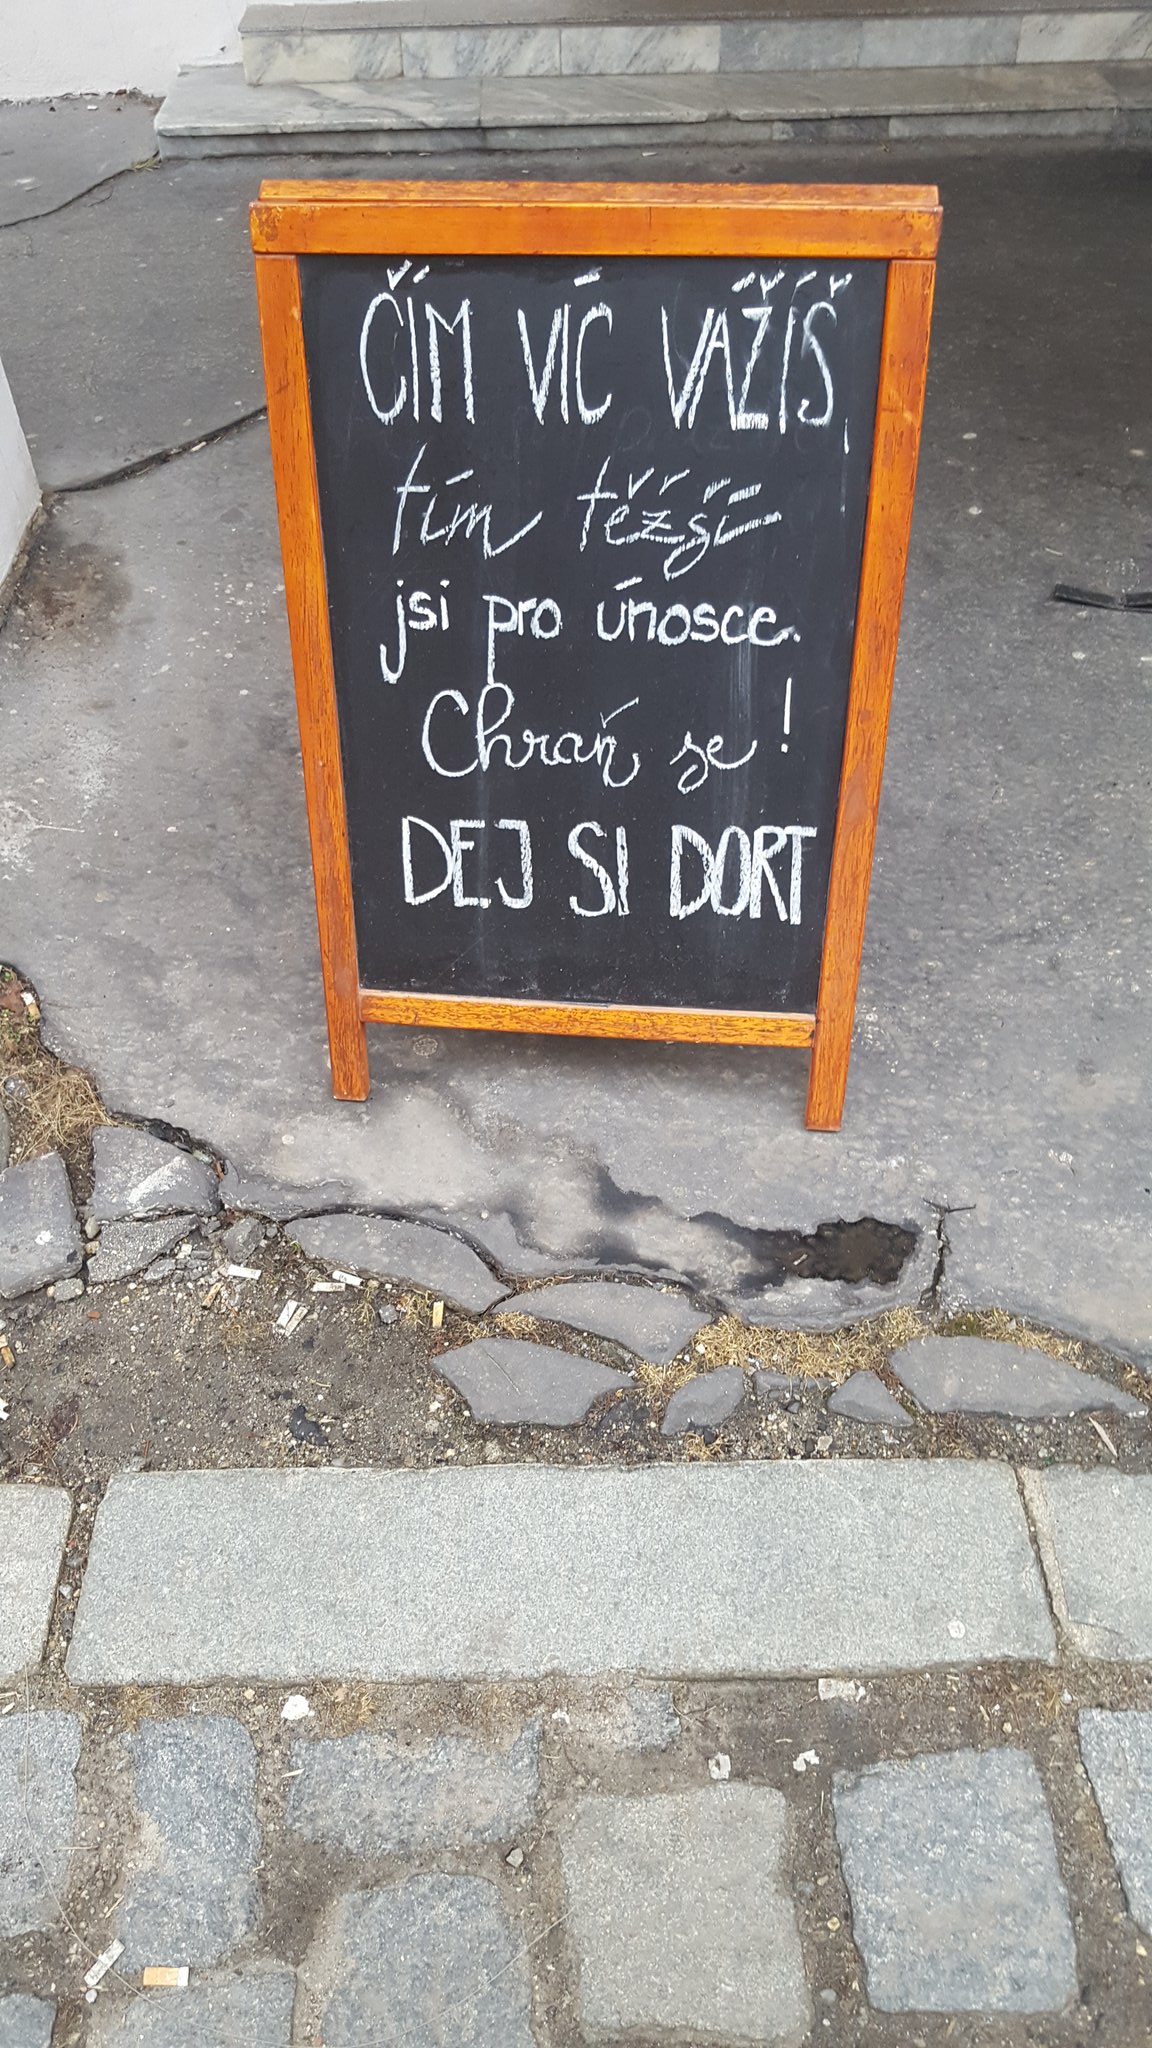 ČÍM VÍC VÁŽÍŠ,
tím těžší
jsi pro únosce.
Chraň se!
DEJ SI DORT